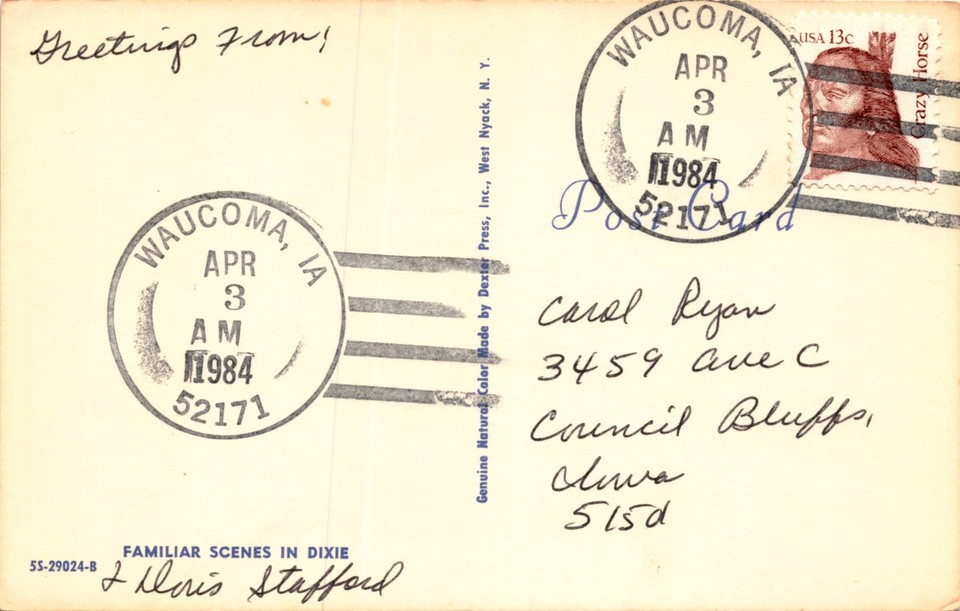 Greetings From!
WAUCOMA, IA
APR
3
AM
1984
52171
FAMILIAR SCENES IN DIXIE
5S-29024-B
& Doris Stafford
Genuine Natural Color Made by Dexter Press, Inc., West Nyack, N. Y.
WAUCOMA, IA
APR
3
AM
1984
52171
USA 13c
Crazy Horse
Post Card
Carol Ryan
3459 Ave C
Council Bluffs,
Iowa
515d